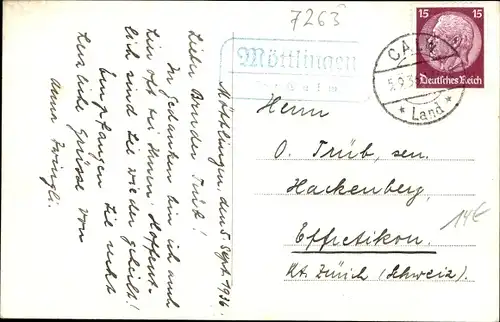 7263
Möttlingen
15 15
Deutsches Reich
CALW
* Land *
Möttlingen, den 5. Sept. 1936.
Lieber Bruder Trüb!
In Gedanken bin ich auch
hin oft bei Ihnen. Hoffent-
lich sind Sie wieder geheilt!
Empfangen Sie recht
herzliche Grüsse von
Anna Zwingli.
Herrn
O. Trüb, sen.
Hackenberg,
Effretikon.
Kt. Zürich (Schweiz).
14€